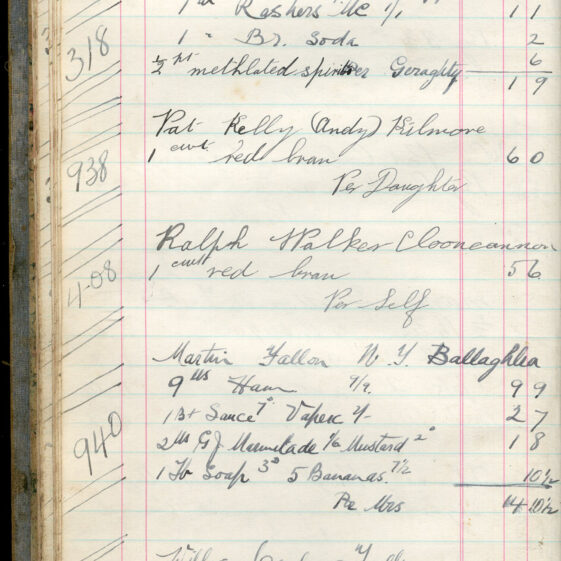 Rashers 1/1 1 1
318
1 " Br. Soda 2
½ pt methlated spirits per Geraghty 6
1 9
Pat Kelly (Andy) Kilmore
938
1 cwt red bran 6 0
Per Daughter
Ralph Walker Clooncannon
408
1 cwt red bran 5 6
Per Self
Martin Fallon N. Y. Ballaghlea
9 lbs Ham 9 9
1 Bt Sauce 7d Vapex 2/- 2 7
940
2 lbs G J Marmelade Mustard 2d 1 8
1 Tb Soap 3d 5 Bananas 7½ 10½
Per Mrs 14 10½